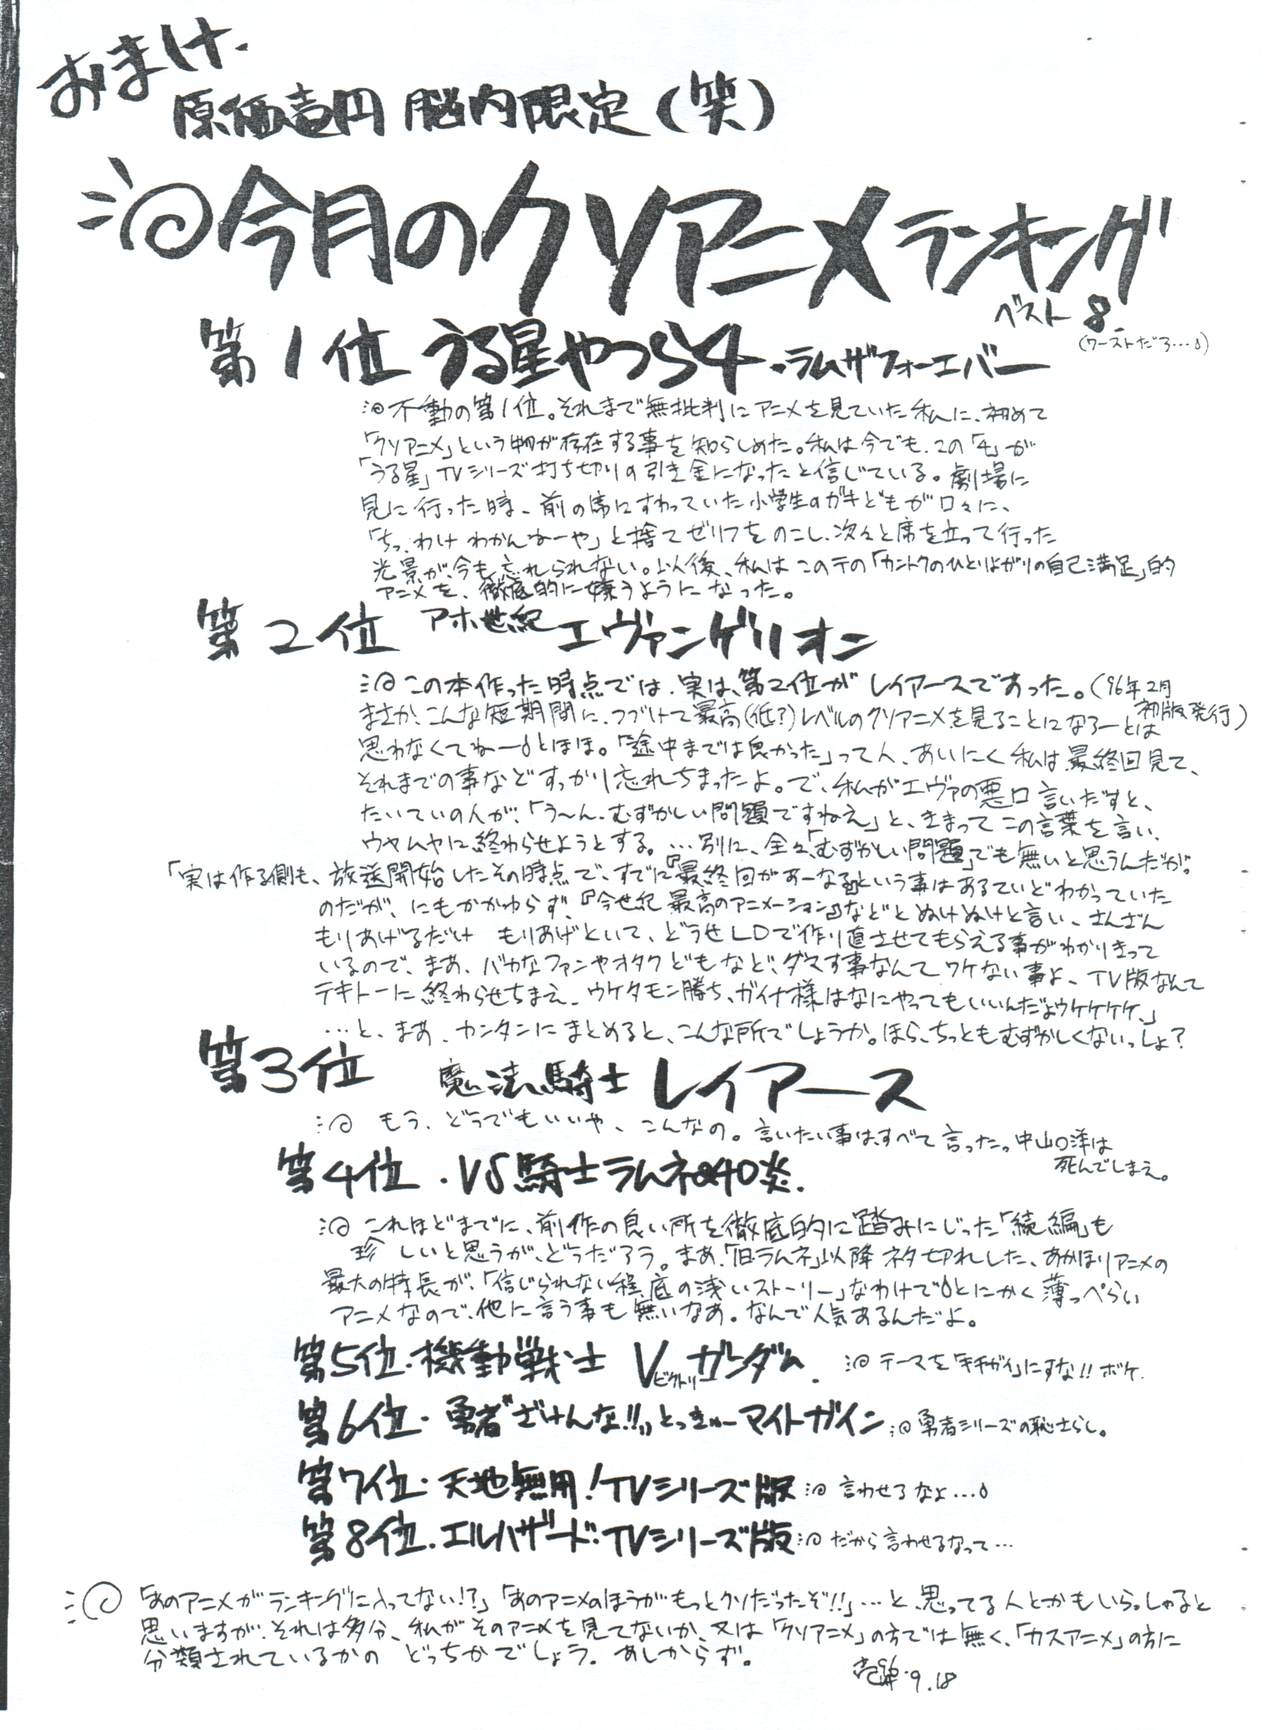 おまけ.
原価壱円 脳内限定(笑)
今月のクソアニメランキング
ベスト8.
(ワーストだろ…)
第1位 うる星やつら4・ラムザフォーエバー
不動の第1位。それまで無批判にアニメを見ていた私に、初めて
「クソアニメ」という物が存在する事を知らしめた。私は今でも、この「4」が
「うる星」TVシリーズ打ち切りの引き金になったと信じている。劇場に
見に行った時、前の席にすわっていた小学生のガキどもが口々に、
「ちっ、わけわかんねーや」と捨てゼリフをのこし、次々と席を立って行った
光景が、今も忘れられない。以後、私はこのテの「カントクのひとりよがりの自己満足」的
アニメを、徹底的に嫌うようになった。
第2位 アホ世紀エヴァンゲリオン
この本作った時点では、実は、第2位がレイアースであった。(96年2月
初版発行)
まさか、こんな短期間に、つづけて最高(低?)レベルのクソアニメを見ることになろーとは
思わなくてねーとほほ。「途中までは良かった」って人、あいにく私は最終回見て、
それまでの事などすっかり忘れちまったよ。で、私がエヴァの悪口言いだすと、
たいていの人が、「う〜ん、むずかしい問題ですねえ」と、きまってこの言葉を言い、
ウヤムヤに終わらせようとする。…別に、全々「むずかしい問題」でも無いと思うんだが。
「実は作る側も、放送開始したその時点で、すでに『最終回があーなる』という事はあるていどわかっていた
のだが、にもかかわらず、『今世紀最高のアニメーション』などとぬけぬけと言い、さんざん
もりあげるだけ もりあげといて、どうせLDで作り直させてもらえる事がわかりきって
いるので、まあ、バカなファンやオタクどもなど、ダマす事なんてワケない事よ、TV版なんて
テキトーに終わらせちまえ、ウケタモン勝ち、ガイナ様はなにやってもいいんだよウケケケケ、」
…と、まあ、カンタンにまとめると、こんな所でしょうか。ほら、ちっともむずかしくないっしょ?
第3位 魔法騎士レイアース
もう、どうでもいいや、こんなの。言いたい事は、すべて言った。中山口洋は
死んでしまえ。
第4位・VS騎士ラムネ&40炎.
これほどまでに、前作の良い所を徹底的に踏みにじった「続編」も
珍しいと思うが、どうだろう。まあ、「旧ラムネ」以降ネタ切れした、あかほりアニメの
最大の特長が、「信じられない程、底の浅いストーリー」なわけでとにかく薄っぺらい
アニメなので、他に言う事も無いなあ。なんで人気あるんだよ。
第5位・機動戦士Vガンダム. テーマを「キチガイ」にすな!!ボケ.
ビクトリー
第6位・勇者"ざけんな!!"とっきゅーマイトガイン 勇者シリーズの恥さらし。
第7位・天地無用!TVシリーズ版 言わせるなよ…
第8位・エルハザード・TVシリーズ版 だから言わせるなって…
「あのアニメがランキングに入ってない!?」「あのアニメのほうがもっとクソだったぞ!!」…と、思ってる人とかもいらっしゃると
思いますが、それは多分、私がそのアニメを見てないか、又は「クソアニメ」の方では無く、「カスアニメ」の方に
分類されているかの どっちかでしょう。あしからず。
96.9.18